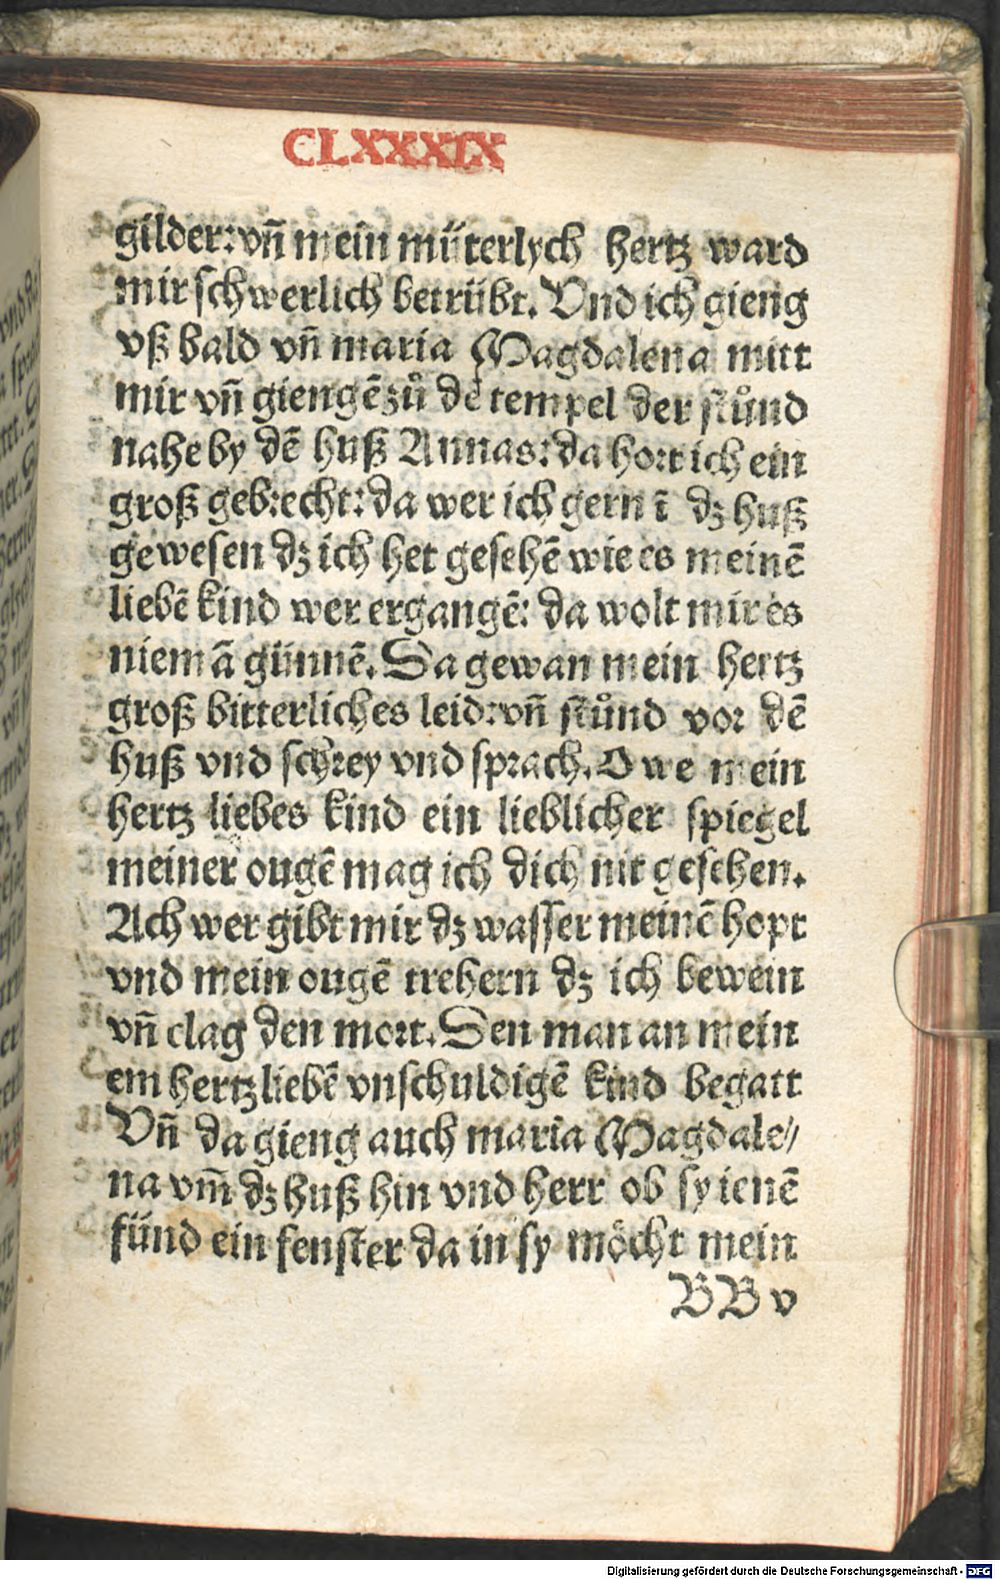 CLXXXIX
gilder: vn̄ mein mu̎terlych hertz ward
mir schwerlich betrübt. Vnd ich gieng
vß bald vn̄ maria Magdalena mitt
mir vn̄ giengē zů dē tempel der stůnd
nahe by dē huß Annas: da hort ich ein
groß gebrecht: da wer ich gern ī dz huß
gewesen dz ich het gesehē wie es meinē
liebē kind wer ergangē: da wolt mir es
niemā günnē. Da gewan mein hertz
groß bitterliches leid: vn̄ stůnd vor dē
huß vnd schrey vnd sprach. O we mein
hertz liebes kind ein lieblicher spiegel
meiner ougē mag ich dich nit gesehen.
Ach wer gibt mir dz wasser meinē hopt
vnd mein ougē trehern dz ich bewein
vn̄ clag den mort. Den man an mein
em hertzliebē vnschuldigē kind begatt
Vn̄ da gieng auch maria Magdale⸗
na vm̄ dz huß hin vnd herr ob sy ienē
fünd ein fenster da in sy möcht mein
BB v
Digitalisierung gefördert durch die Deutsche Forschungsgemeinschaft - DFG